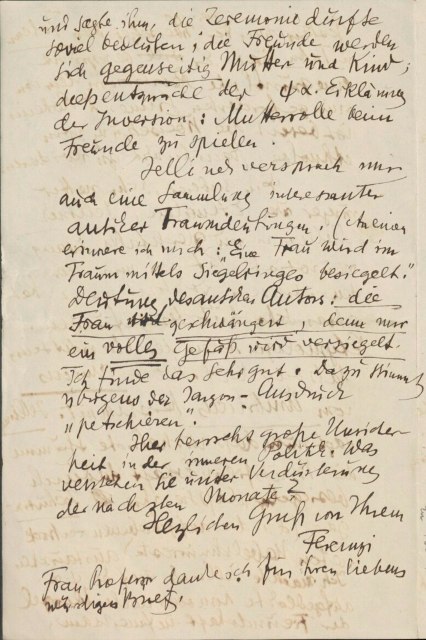 und sagte ihm, die Zeremonie dürfte
soviel bedeuten: die Freunde werden
sich gegenseitig Mutter und Kind;
dies entspräche der ψα. Erklärung
der Inversion: Mutterrolle beim
Freunde zu spielen.
Jellinek versprach mir
auch eine Sammlung interessanter
antiker Traumdeutungen. (An einen
erinnere ich mich: "Eine Frau wird im
Traum mittels Siegelringes besiegelt."
Deutung des antiken Autors: die
Frau wird geschwängert, denn nur
ein volles Gefäß wird versiegelt.
Ich finde das sehr gut. Dazu stimmt
übrigens der Jargon-Ausdruck
"petschieren".
Hier herrscht große Unsicher-
heit in der inneren Politik. Was
verstehen Sie unter Verdüsterung
der nächsten Monate?
Herzlichen Gruß von Ihrem
Ferenczi
Frau Professor danke ich für ihren liebens
würdigen Brief.